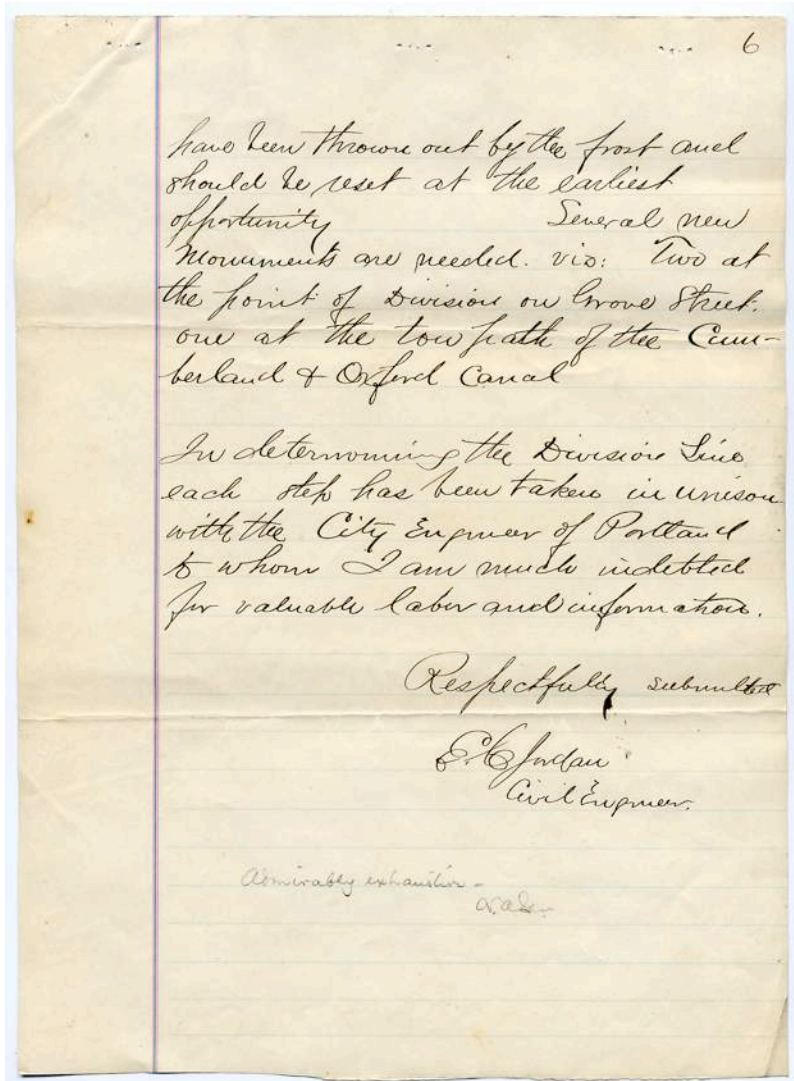 6
have been thrown out by the frost and
should be reset at the earliest
opportunity Several new
Monuments are needed. viz: Two at
the point of Division on Grove Street.
one at the tow path of the Cum-
berland & Oxford Canal
In determining the Division Line
each step has been taken in unison
with the City Engineer of Portland
to whom I am much indebted
for valuable labor and information.
Respectfully submitted
E. C. Jordan
Civil Engineer.
Admirably exhaustive -